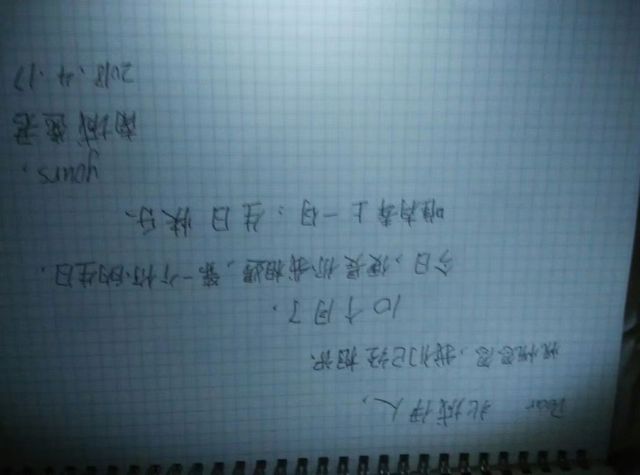 Dear 北城伊人,
我们已经相识
10个月了.
今日,便是你我相遇,第一个你的生日.
唯有奉上一句:生日快乐.
yours,
南城
2018.4.17